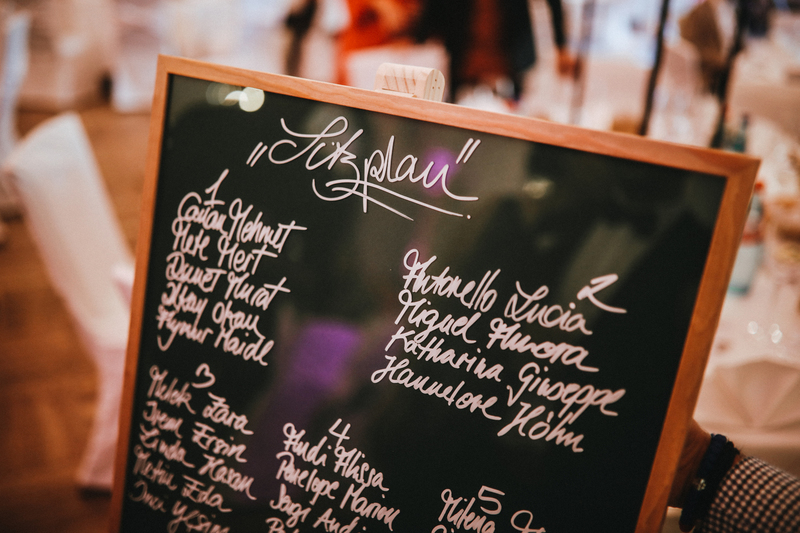 "Sitzplan"
1
Mehmet
Mete Mert
Murat
Ilkay Okan
Aynur Maide
2
Antonello Lucia
Miguel Amora
Katharina Giuseppe
Hannelore Höhn
3
Melek Zara
Irem Ersin
Linda Hasan
Metin Eda
4
Andi Alissa
Penelope Marion
Sergl Andi
5
Milena